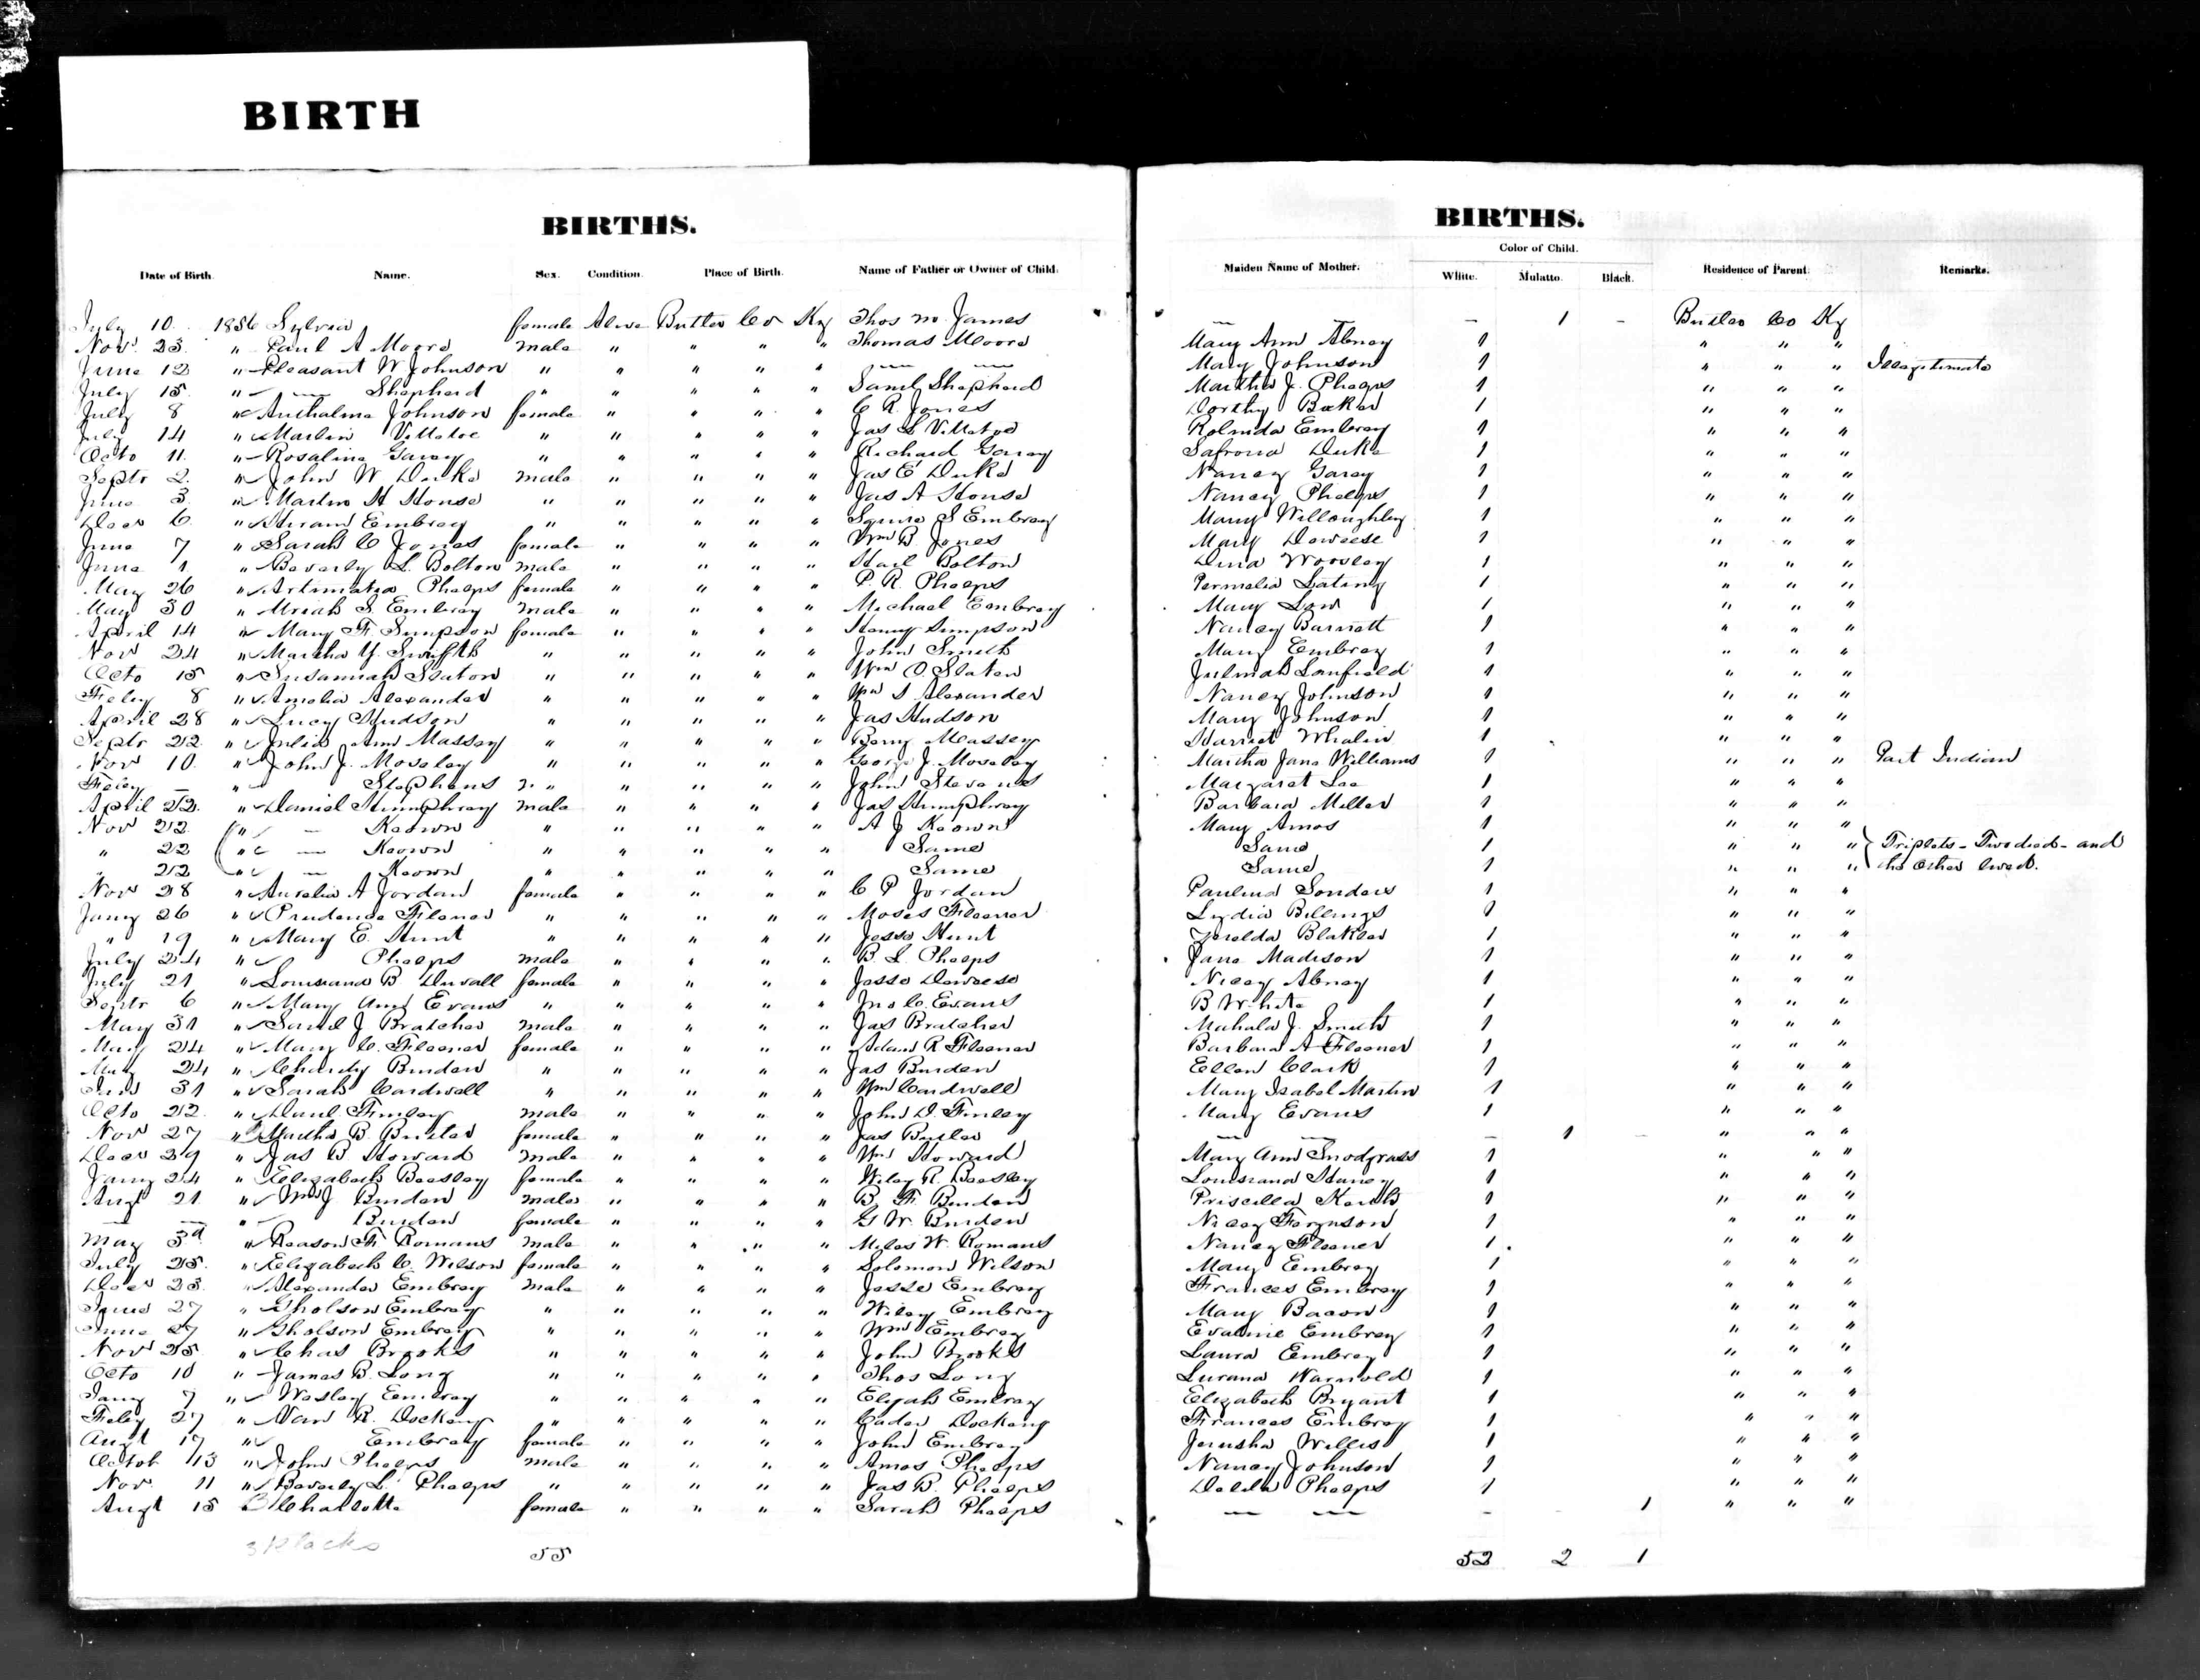 BIRTH
BIRTHS.
Date of Birth. Name. Sex. Condition. Place of Birth. Name of Father or Owner of Child.
July 10 1856 Sylvia female Alive Butler Co Ky Thos M. James
Nov. 23 " Paul A Moore male " " " " Thomas Moore
June 12 " Pleasant W Johnson " " " " " — —
July 15 " — Shepherd " " " " " Saml Shepherd
July 8 " Johnson female " " " " C R. Jones
July 14 " " " " " " Jas
Octo 11 " Rosalina Garey " " " " " Richard Garey
Septr 2 " John W Duke male " " " " Jas E Duke
June 3 " H House " " " " " Jas A House
Decr 6 " Hiram Embrey " " " " " Squire S Embrey
June 7 " Sarah C Jones female " " " " Wm B. Jones
June 1 " Beverly L. Bolton male " " " " Bolton
May 26 " Phelps female " " " " P. R. Phelps
May 30 " Uriah S. Embrey male " " " " Michael Embrey
April 14 " Mary F. Simpson female " " " " Henry Simpson
Nov 24 " Martha Y. " " " " " John Smith
Octo 15 " Susannah Slaton " " " " " Wm O. Slaton
Feby 8 " Amelia Alexander " " " " " Wm S Alexander
April 28 " Lucy Hudson " " " " " Jas Hudson
Septr 22 " Julia Ann Massey " " " " " Massey
Nov 10 " John J. Moseley " " " " " George J. Moseley
Feby — " Stephens " " " " John Stevens
April 22 " Daniel Humphrey male " " " " Jas Humphrey
Nov 22 " — Keown " " " " " A J Keown
" 22 " — Keown " " " " " Same
" 22 " — Keown " " " " " Same
Nov 28 " Aurelia A Jordan female " " " " C P Jordan
Jany 26 " Prudence " " " " " Moses Fleener
" 19 " Mary E. Hunt " " " " " Jesse Hunt
July 24 " Phelps male " " " " B. L. Phelps
July 21 " B Duvall female " " " " Jesse Deweese
Septr 6 " Mary Ann Evans " " " " " Jno C. Evans
May 31 " J Bratcher male " " " " Jas Bratcher
May 24 " Mary C. Fleener female " " " " Adam R Fleener
May 24 " Burden " " " " " Jas Burden
31 " Sarah Cardwell " " " " " Wm Cardwell
Octo 22 " Finley male " " " " John D. Finley
Nov 27 " Martha B. Butler female " " " " Jas Butler
Decr 29 " Jas B Howard male " " " " Wm Howard
Jany 24 " Elizabeth Beesley female " " " " Wiley R. Beesley
Augt 21 " Wm J. Burden male " " " " B. F. Burden
— — " Burden female " " " " G W. Burden
May 3d " Reason F. Romans male " " " " Miles W. Romans
July 25 " Elizabeth C. Wilson female " " " " Solomon Wilson
Decr 23 " Alexander Embrey male " " " " Jesse Embrey
27 " Gholson Embrey " " " " " Wiley Embrey
June 27 " Gholson Embrey " " " " " Wm Embrey
Nov 25 " Chas Brooks " " " " " John Brooks
Octo 10 " James B. Long " " " " " Thos Long
Jany 7 " Wesley Embrey " " " " " Elijah Embrey
Feby 27 " R. Dockery " " " " " Dockery
Augt 17 " Embrey female " " " " John Embrey
Octob 13 " John Phelps male " " " " Amos Phelps
Nov 11 " Beverly L. Phelps " " " " " Jas B. Phelps
Augt 15 Charlotte female " " " " Sarah Phelps
3 Blacks
55
BIRTHS.
Color of Child.
Maiden Name of Mother. White. Mulatto. Black. Residence of Parent. Remarks.
— — — 1 — Butler Co Ky
Mary Ann Abney 1 " " "
Mary Johnson 1 " " " Illegitimate
Martha J. Phelps 1 " " "
Dorthy Baker 1 " " "
Embrey 1 " " "
Duke 1 " " "
Nancy Garey 1 " " "
Nancy Phelps 1 " " "
Mary Willoughby 1 " " "
Mary Deweese 1 " " "
Woosley 1 " " "
Permelia 1 " " "
Mary Low 1 " " "
Nancy Barnett 1 " " "
Mary Embrey 1 " " "
1 " " "
Nancy Johnson 1 " " "
Mary Johnson 1 " " "
Harriet Whalin 1 " " "
Martha Jane Williams 1 " " " Part Indian
Margaret Lee 1 " " "
Barbara Miller 1 " " "
Mary Amos 1 " " "
Same 1 " " " Triplets - Two died - and
Same 1 " " " the other lived.
Paulina Sanders 1 " " "
Lydia Billings 1 " " "
1 " " "
Jane Madison 1 " " "
Nicey Abney 1 " " "
B White 1 " " "
Mahala J. Smith 1 " " "
Barbara A Fleener 1 " " "
Ellen Clark 1 " " "
Mary Isabel Martin 1 " " "
Mary Evans 1 " " "
— — — 1 — " " "
Mary Ann Snodgrass 1 " " "
1 " " "
Priscilla Keith 1 " " "
Nicey Ferguson 1 " " "
Nancy Fleener 1 " " "
Mary Embrey 1 " " "
Frances Embrey 1 " " "
Mary Bacon 1 " " "
Embrey 1 " " "
Laura Embrey 1 " " "
Lurana 1 " " "
Elizabeth Bryant 1 " " "
Frances Embrey 1 " " "
Jerusha Willis 1 " " "
Nancy Johnson 1 " " "
Phelps 1 " " "
— — — 1 " " "
52 2 1